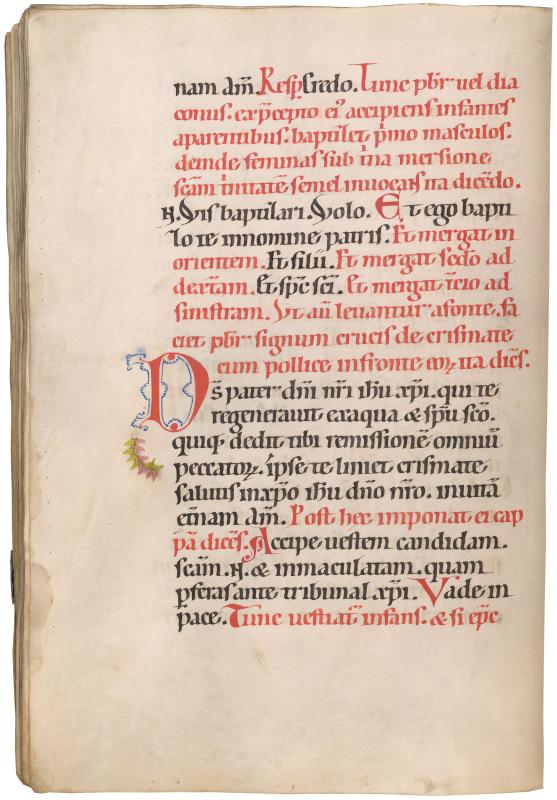 nam am̄. Resp̄. Credo. Tunc pb̄r uel dia
conus. ex p̄cepto ei᷒ accipiens infantes
a parentibus. baptiȥet p̄mo masculos.
deinde feminas sub t̓na mersione
sc̄am t̓nitatē semel inuocans ita dicēdo.
N. Vis baptiȥari. Volo. Et ego bapti
ȥo te in nomine patris. Et mergat in
orientem. Et filii. Et mergat sedo ad
dexteram. Et sp̄c sc̄i. Et mergat t̓cio ad
sinistram. Vt aū leuantur a fonte. fa
ciet pb̄r signum crucis de crismate
cum pollice in fronte eoꝝ ita dicēs.
Ds̄ pater dn̄i nr̄i ihū xp̄i. qui te
regenerauit ex aqua & sp̄u sc̄o.
quiq; dedit tibi remissionē omniū
peccatoꝝ. ip̄se te liniet crismate
salutis in xp̄o ihū dn̄o nr̄o. in uitā
et̄nam am̄. Post hec imponat ei cap
pā dicēs. Accipe uestem candidam.
sc̄am. N. & inmaculatam. quam
p̄feras ante tribunal xp̄i. Vade in
pace. Tunc uestiat̄ infans. & si ep̄c